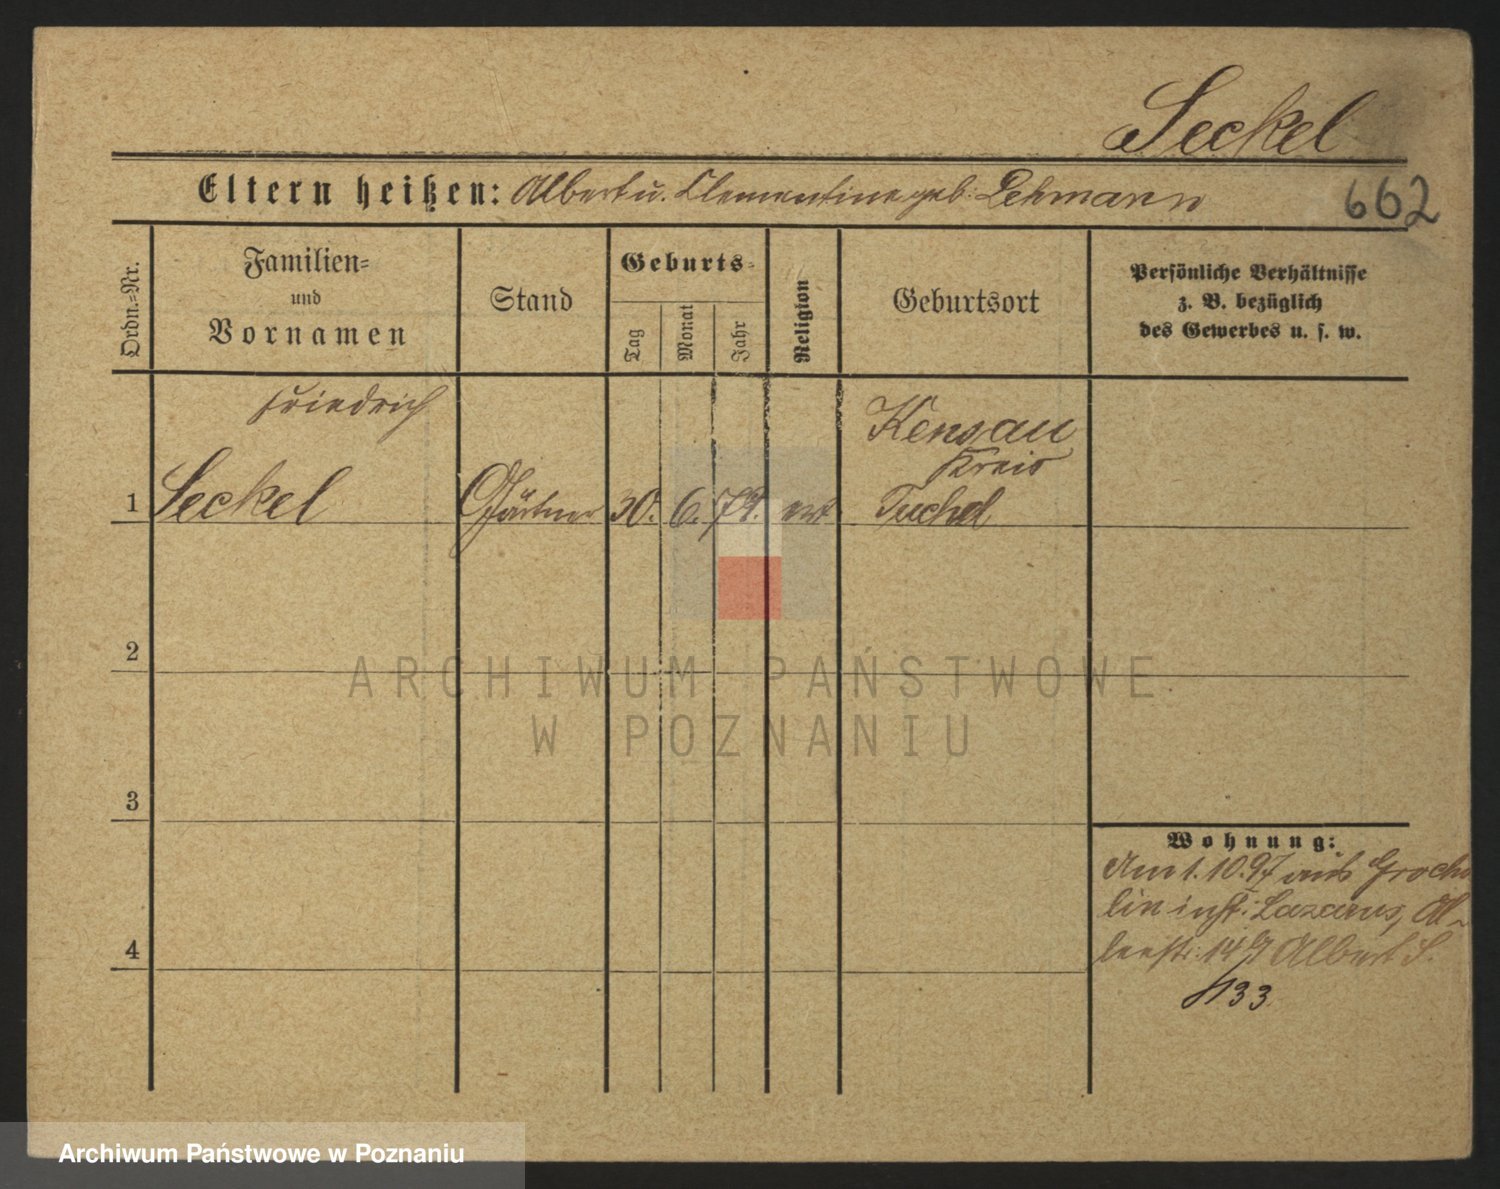 Seckel
Eltern heißen: Albert u. Clementine geb. Lehmann
662
Ordn.-Nr.
Familien-
und
Vornamen
Stand
Geburts-
Tag
Monat
Jahr
Religion
Geburtsort
Persönliche Verhältnisse
z. B. bezüglich
des Gewerbes u. s. w.
Friedrich
1 Seckel Gärtner 30. 6. 79.
Kensau
Kreis
Tuchel
2
3
4
Wohnung:
Am 1.10.97 aus Grocho
lin inst: Lazarus, Al-
Albert S.
ARCHIWUM PAŃSTWOWE
W POZNANIU
Archiwum Państwowe w Poznaniu